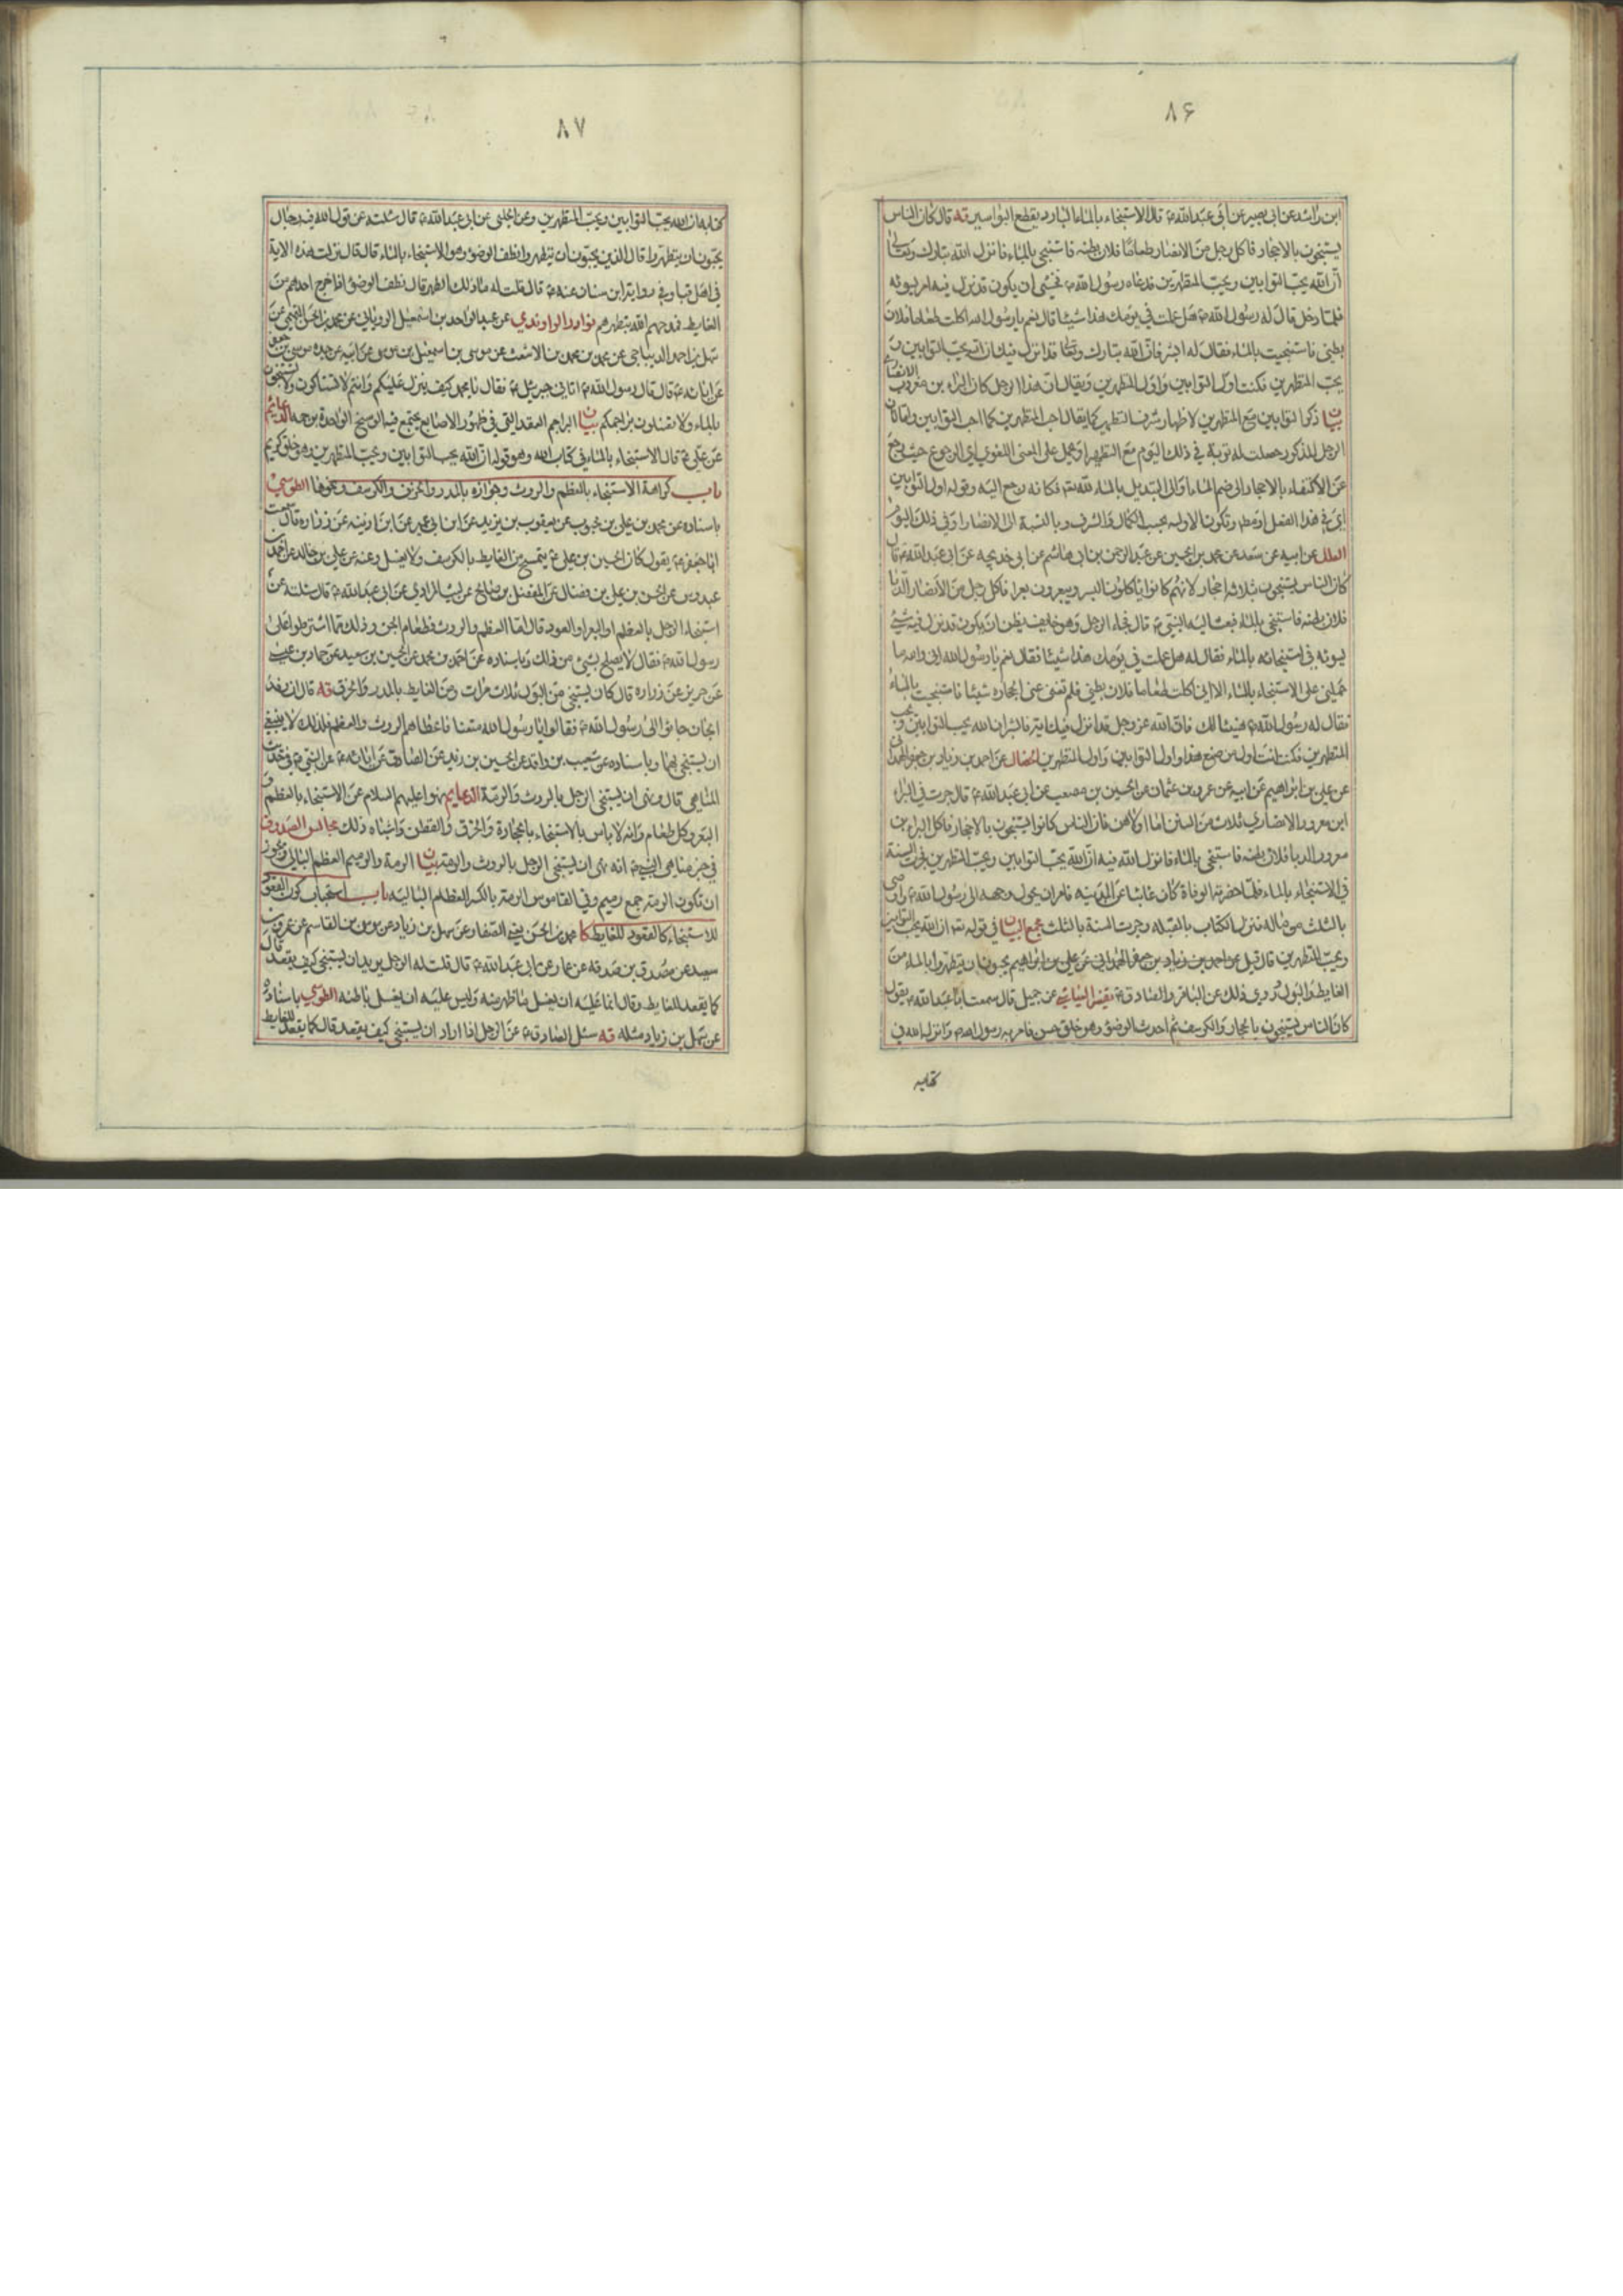 ۸۶
ابن راشد عن ابی بصیر عن ابی عبدالله ع قال الاستنجاء بالماء البارد یقطع البواسیر قه قال کان الناس
یستنجون بالاحجار فاکل رجل من الانصار طعامًا فلان بطنه فاستنجی بالماء فانزل الله تبارک وتعالی
ان الله یحب التوابین ویحب المتطهرین فدعاه رسول الله ص فخشی ان یکون قد نزل فیه امر یسوئه
فلما دخل قال له رسول الله ص هل عملت فی یومک هذا شیئا قال نعم یا رسول الله اکلت طعاما فلان
بطنی فاستنجیت بالماء فقال له ابشر فان الله تبارک وتعالی قد انزل فیک ان الله یحب التوابین و
یحب المتطهرین فکنت اول التوابین واول المتطهرین ویقال ان هذا الرجل کان البراء بن معرور الانصاری
بیان ذکر التوابین مع المتطهرین لاظهار شرف التطهیر کما یقال احب المتطهرین کما احب التوابین
الرجل المذکور حصلت له توبة فی ذلک الیوم مع التطهیر او یحمل علی المعنی اللغوی ای الرجوع حیث رجع
عن الاکتفاء بالاحجار الی ضم الماء او الی التبدیل بالماء لله تعالی فکانه رجع الیه وقوله اول التوابین
ای فی هذا الفعل او مطلقا وتکون الاولیه بحسب الکمال والشرف وبالنسبة الی الانصار او فی ذلک الیوم
العلل عن ابیه عن سعد عن محمد بن الحسین عن عبد الرحمن بن ابی هاشم عن ابی خدیجه عن ابی عبدالله ع قال
کان الناس یستنجون بثلاثه احجار لانهم کانوا یاکلون البسر ویبعرون بعرا فاکل رجل من الانصار الدبا
فلان بطنه فاستنجی بالماء فبعث الیه النبی ص قال فجاء الرجل وهو خایف یظن ان یکون قد نزل فیه شیء
یسوئه فی استنجائه بالماء فقال له هل عملت فی یومک هذا شیئا فقال نعم یا رسول الله انی والله ما
حملنی علی الاستنجاء بالماء الا انی اکلت طعاما فلان بطنی فلم تغن عنی الحجاره شیئا فاستنجیت بالماء
فقال له رسول الله ص هنیئا لک فان الله عز وجل قد انزل فیک ایة فابشر ان الله یحب التوابین ویحب
المتطهرین فکنت انت اول من صنع هذا واول التوابین واول المتطهرین الخصال عن احمد بن زیاد بن جعفر الهمدانی
عن علی بن ابراهیم عن ابیه عن عمرو بن عثمان عن الحسین بن مصعب عن ابی عبدالله ع قال جرت فی البراء
ابن معرور الانصاری ثلاث من السنن اما اولاهن فان الناس کانوا یستنجون بالاحجار فاکل البراء بن
معرور الدبا فلان بطنه فاستنجی بالماء فانزل الله فیه ان الله یحب التوابین ویحب المتطهرین فجرت السنة
فی الاستنجاء بالماء فلما حضرته الوفاة کان غائبا عن المدینه فامر ان یحول وجهه الی رسول الله ص واوصی
بالثلث من ماله فنزل الکتاب بالقبله وجرت السنة بالثلث مجمع البیان فی قوله تعالی ان الله یحب التوابین
ویحب المتطهرین قال قیل عن احمد بن زیاد بن جعفر الهمدانی عن علی بن ابراهیم یحبون ان یتطهروا بالماء من
الغایط والبول وروی ذلک عن الباقر والصادق ع تفسیر العیاشی عن جمیل قال سمعت ابا عبدالله ع یقول
کان الناس یستنجون بالحجار والکرسف ثم احدث الوضوء وهو خلق حسن فامر به رسول الله ص وانزله الله فی
کتابه
۸۷
کتابه ان الله یحب التوابین ویحب المتطهرین وعن الحلبی عن ابی عبدالله ع قال سئلته عن قول الله فیه رجال
یحبون ان یتطهروا قال الذین یحبون ان یتطهروا نظف الوضوء وهو الاستنجاء بالماء قال قال نزلت هذه الایة
فی اهل قبا وفی روایة ابن سنان عنه ع قال قلت له ما ذلک الطهر قال نظف الوضوء اذا خرج احدهم من
الغایط فمدحهم الله بتطهرهم نوادر الراوندی عن عبد الواحد بن اسمعیل الرویانی عن محمد بن الحسن التمیمی عن
سهل بن احمد الدیباجی عن محمد بن محمد بن الاشعث عن موسی بن اسمعیل بن موسی عن ابیه عن جده موسی بن جعفر
عن ابائه ع قال قال رسول الله ص اتانی جبرئیل ع فقال یا محمد کیف ینزل علیکم وانتم لا تستاکون ولا تستنجون
بالماء ولا تغسلون براجمکم بیان البراجم العقد التی فی ظهور الاصابع یجتمع فیه الوسخ الواحدة برجمه الدعایم
عن علی ع قال الاستنجاء بالماء فی کتاب الله وهو قوله ان الله یحب التوابین ویحب المتطهرین وهو خلق کریم
باب کراهة الاستنجاء بالعظم والروث وجوازه بالمدر والخزف والکرسف ونحوها الطوسی
باسناده عن محمد بن علی بن محبوب عن یعقوب بن یزید عن ابن ابی عمیر عن ابن اذینه عن زراره قال سمعت
ابا جعفر ع یقول کان الحسین بن علی ع یتمسح من الغایط بالکرسف ولا یغسل وعنه عن علی بن خالد عن احمد بن
عبدوس عن الحسن بن علی بن فضال عن المفضل بن صالح عن لیث المرادی عن ابی عبدالله ع قال سئلته عن
استنجاء الرجل بالعظم او البعر او العود قال اما العظم والروث فطعام الجن وذلک مما اشترطوا علی
رسول الله ص فقال لا یصلح بشئ من ذلک وباسناده عن احمد بن محمد عن الحسین بن سعید عن حماد بن عیسی
عن حریز عن زراره قال کان یستنجی من البول ثلاث مرات ومن الغایط بالمدر والخرق قه قال ان وفد
الجان جاءوا الی رسول الله ص فقالوا یا رسول الله متعنا فاعطاهم الروث والعظم فلذلک لا ینبغی
ان یستنجی بهما وباسناده عن شعیب بن واقد عن الحسین بن زید عن الصادق عن ابائه ع عن النبی ص فی حدیث
المناهی قال ونهی ان یستنجی الرجل بالروث والرمة الدعایم نهوا علیهم السلام عن الاستنجاء بالعظم و
البعر وکل طعام وانه لا باس بالاستنجاء بالحجارة والخزق والقطن واشباه ذلک مجالس الصدوق
فی خبر مناهی النبی ص انه نهی ان یستنجی الرجل بالروث والرمة بیان الرمة والرمیم العظم البالی ویجوز
ان تکون الرمة جمع رمیم وفی القاموس الرمة بالکسر العظام البالیة باب استحباب کون القعود
للاستنجاء کالقعود للغایط کا محمد بن الحسن عن سهل بن زیاد عن موسی بن القاسم عن عمرو بن
سعید عن مصدق بن صدقه عن عمار عن ابی عبدالله ع قال قلت له الرجل یرید ان یستنجی کیف یقعد قال
کما یقعد للغایط وقال انما علیه ان یغسل ما ظهر منه ولیس علیه ان یغسل باطنه الطوسی باسناده
عن سهل بن زیاد مثله قه سئل الصادق ع عن الرجل اذا اراد ان یستنجی کیف یقعد قال کما یقعد للغایط